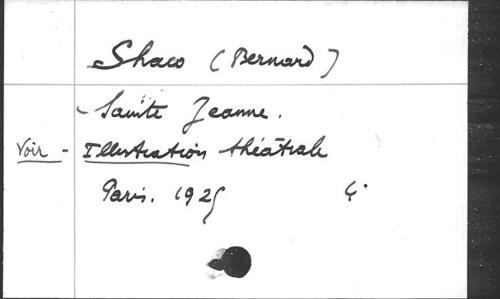 Shaw (Bernard)
- Sainte Jeanne.
Voir - Illustration théâtrale
Paris. 1925 4°